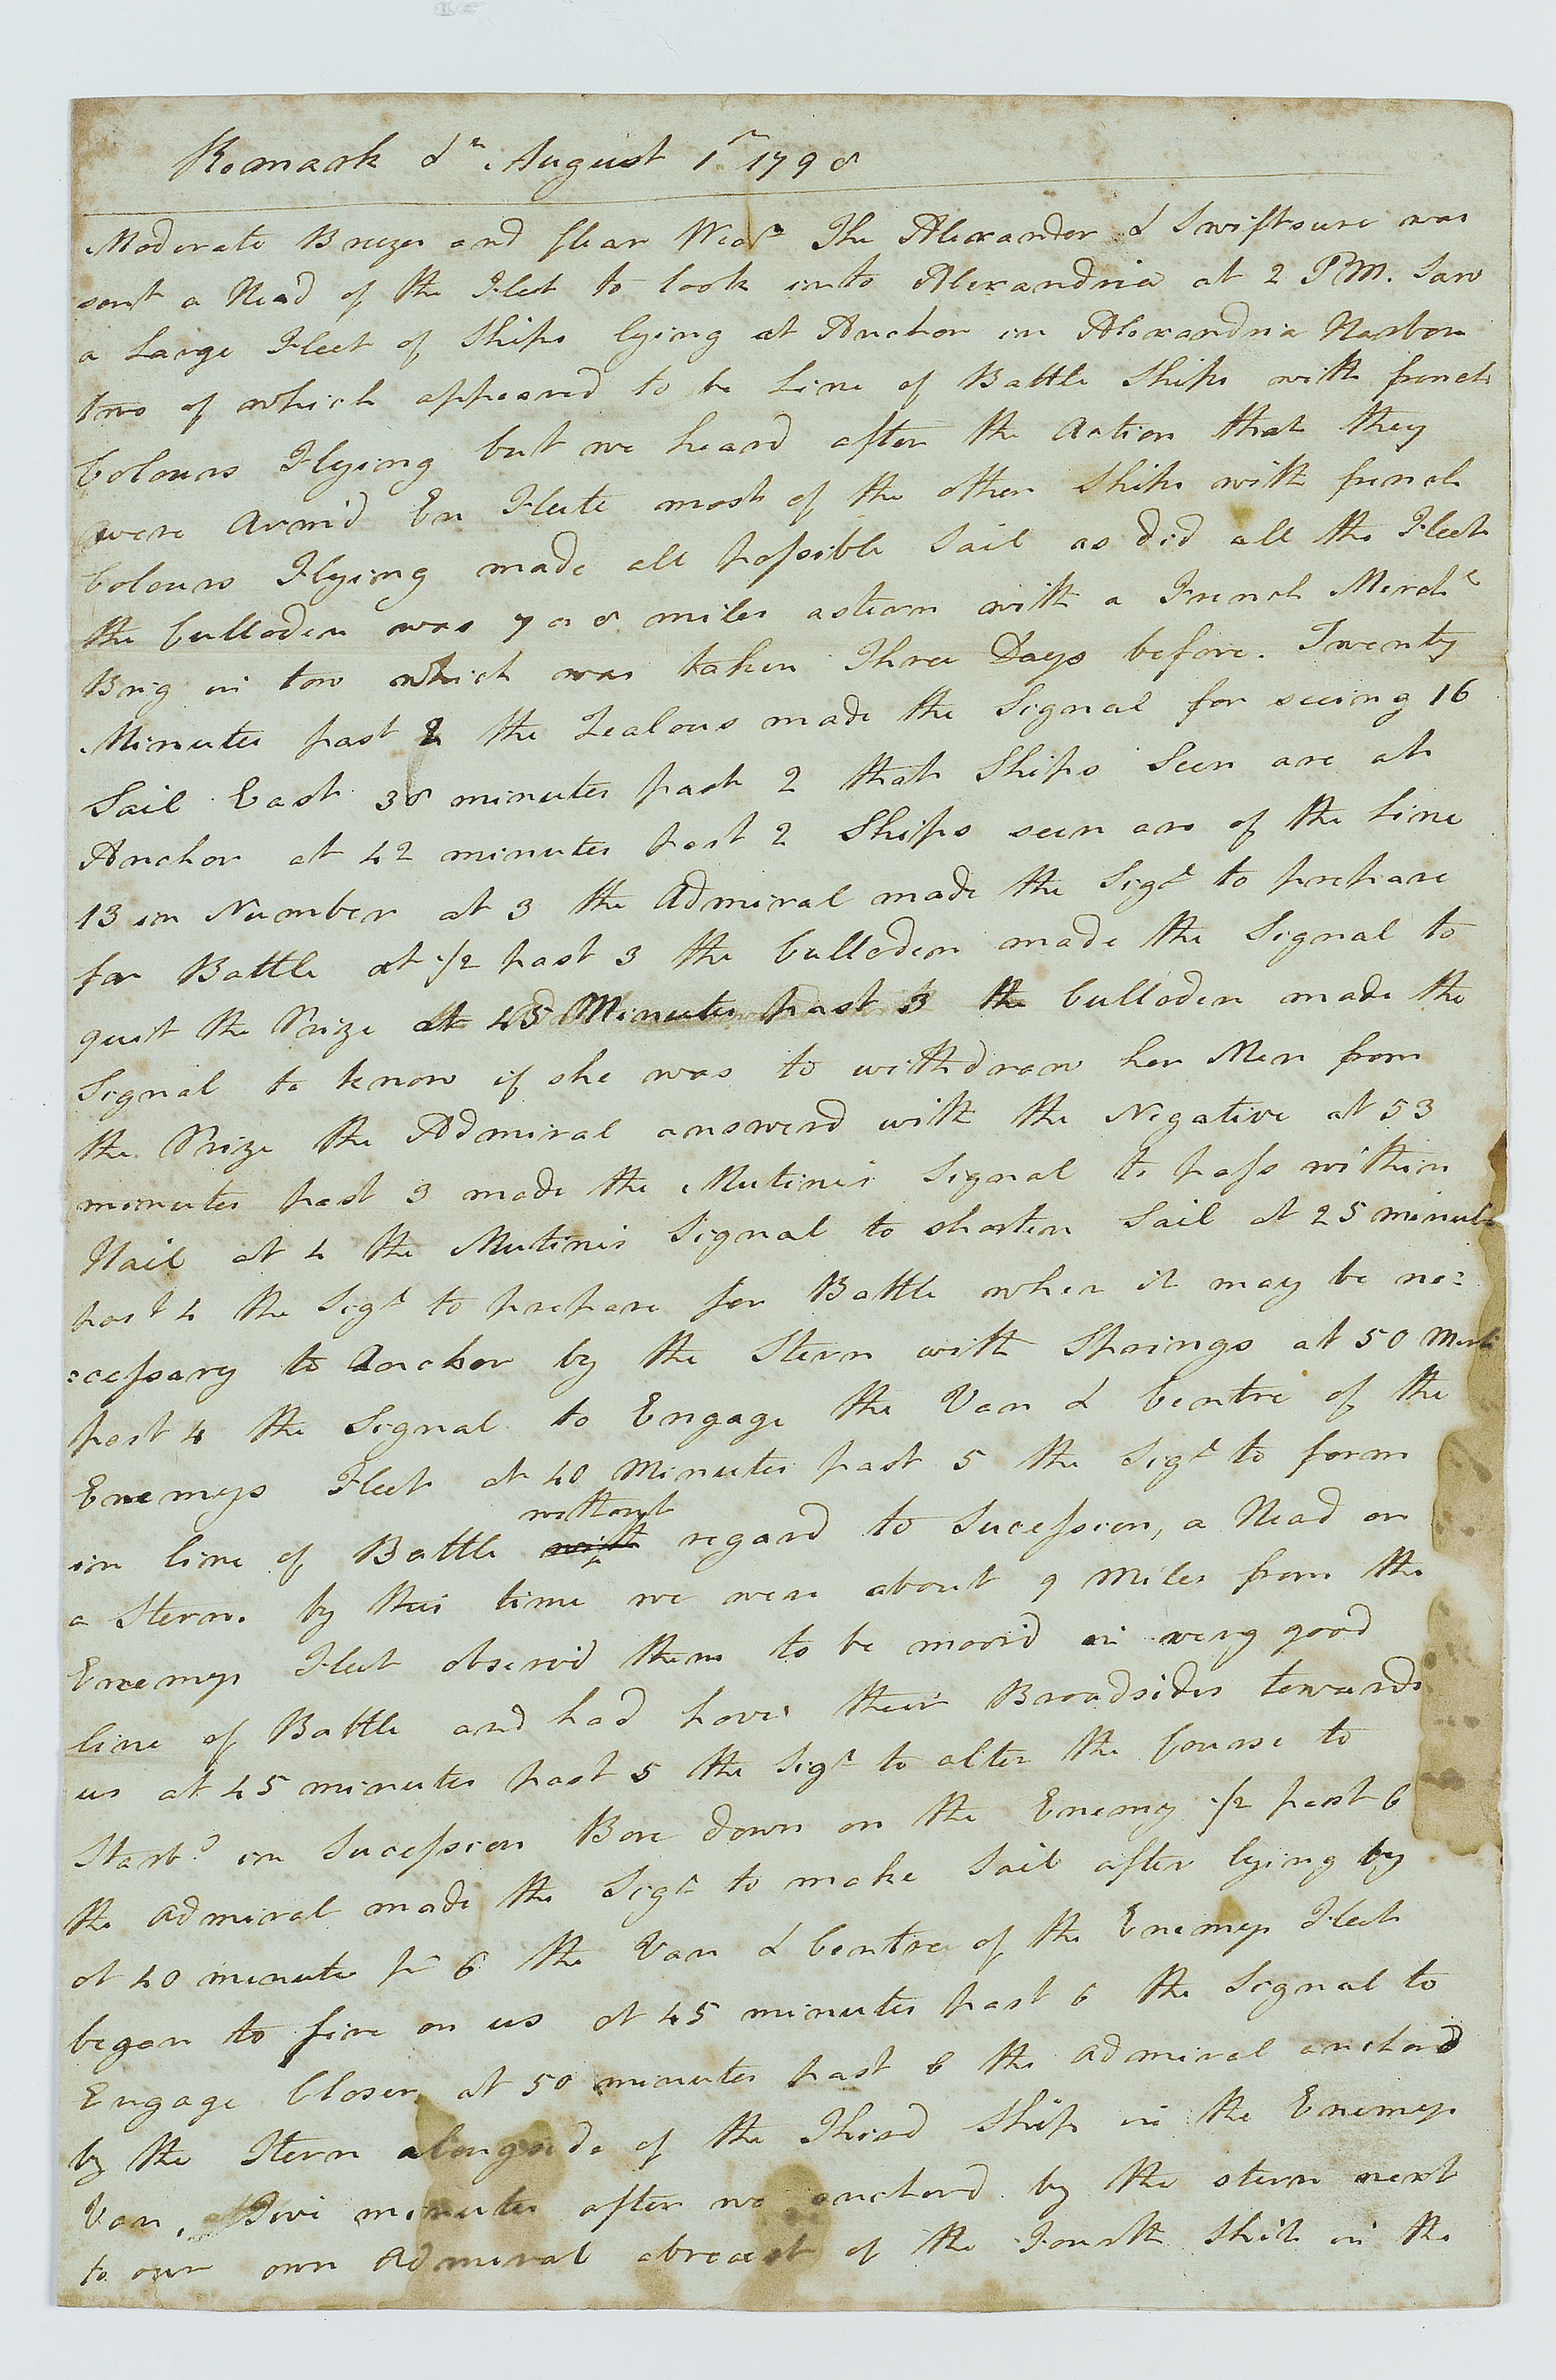 Remark &c. August 1st 1798
Moderate Breezes and Clear Wear. The Alexander & Swiftsure was
sent a Head of the Fleet to look into Alexandria at 2 PM. Saw
a Large Fleet of Ships lying at Anchor in Alexandria Harbour
two of which appeared to be Line of Battle Ships with french
Colours Flying but we heard after the Action that they
were Arm'd En Flute most of the other Ships with french
Colours Flying made all possible Sail as did all the Fleet
the Culloden was 7 or 8 miles astern with a French Mercht
Brig in tow which was taken Three Days before. Twenty
Minutes past 2 the Zealous made the Signal for seeing 16
Sail East 38 minutes past 2 that Ships Seen are at
Anchor at 42 minutes past 2 Ships seen are of the Line
13 in Number at 3 the Admiral made the Sigl to prepare
for Battle at 1/2 past 3 the Culloden made the Signal to
quit the Prize At 45 Minutes past 3 the Culloden made the
Signal to know if she was to withdraw her Men from
the Prize the Admiral answerd with the Negative at 53
minutes past 3 made the Mutines Signal to pass within
Hail at 4 the Mutines Signal to shorten Sail at 25 minutes
past 4 the Sigl to prepare for Battle when it may be ne=
=cessary to Anchor by the Stern with Springs at 50 Mints
past 4 the Signal to Engage the Van & Centre of the
Enemys Fleet at 40 Minutes past 5 the Sigl to form
without
in line of Battle regard to Sucession, a Head or
a Stern. by this time we were about 9 Miles from the
Enemys Fleet observ'd them to be moor'd in very good
line of Battle and had hove their Broadsides towards
us at 45 minutes past 5 the Sigl to alter the Course to
Starbd in Sucession Bore down on the Enemy 1/2 past 6
the Admiral made the Sigl to make Sail after lying by
at 40 minutes pt 6 the Van & Centre of the Enemys Fleet
began to fire on us at 45 minutes past 6 the Signal to
Engage Closer, at 50 minutes past 6 the Admiral anchord
by the Stern alongside of the Third Ship in the Enemys
Van, Five minutes after we anchord by the stern next
to our own Admiral abreast of the Fourth Ship in the